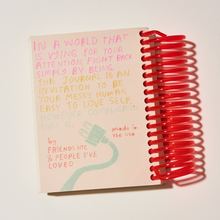 IN A WORLD THAT
IS VYING FOR YOUR
ATTENTION, FIGHT BACK
SIMPLY BY BEING.
THE JOURNAL IS AN
INVITATION TO BE
YOUR MESSY HUMAN,
EASY TO LOVE SELF.
by
FRIENDS OF
& PEOPLE I'VE
LOVED
made in
the USA